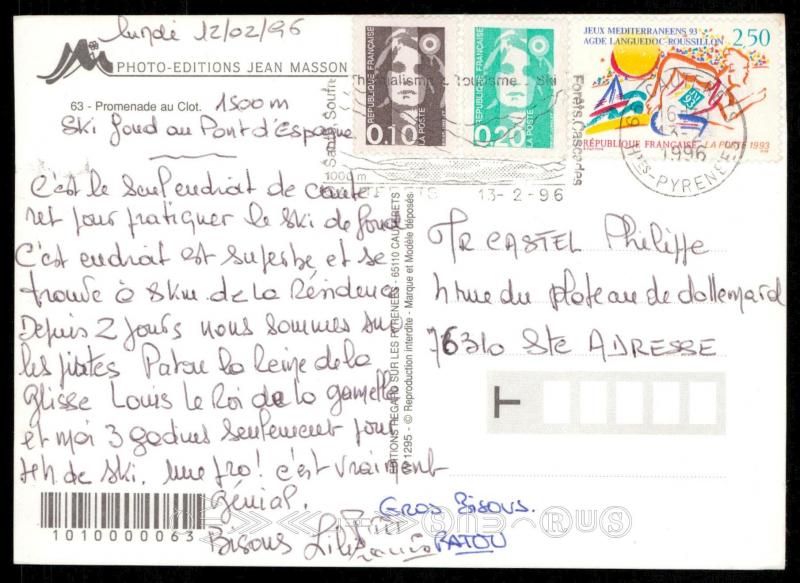 lundi 12/02/96
PHOTO-EDITIONS JEAN MASSON
63 - Promenade au Clot. 1500m
Ski fond au Pont d'Espagne
C'est le seul endroit de Caute
ret pour pratiquer le ski de fond
C'est endroit est superbe et se
trouve à 8km de la Résidence
Depuis 2 jours nous sommes sur
les pistes Patou la Reine de la
Glisse Louis le Roi de la gamelle
et moi 3 godins seulement pour
4h de Ski. une pro! c'est vraiment
Génial.
Bisous Lili
Francis
Gros Bisous.
PATOU
1010000063
EDITIONS REGARD SUR LES PYRENEES - 65110 CAUTERETS
1295 - © Reproduction interdite - Marque et Modèle déposés
RÉPUBLIQUE FRANÇAISE
0,10
LA POSTE
RÉPUBLIQUE FRANÇAISE
0,20
LA POSTE
JEUX MEDITERRANEENS 93
AGDE LANGUEDOC-ROUSSILLON
2,50
RÉPUBLIQUE FRANÇAISE LA POSTE 1993
Thermalisme Tourisme Ski
Forêts, Cascades
1000 m
13-2-96
CAUTERETS
16
13-
1996
HTES-PYRENEES
Mr CASTEL Philippe
4 rue du plateau de dollemard
76310 Ste ADRESSE
T